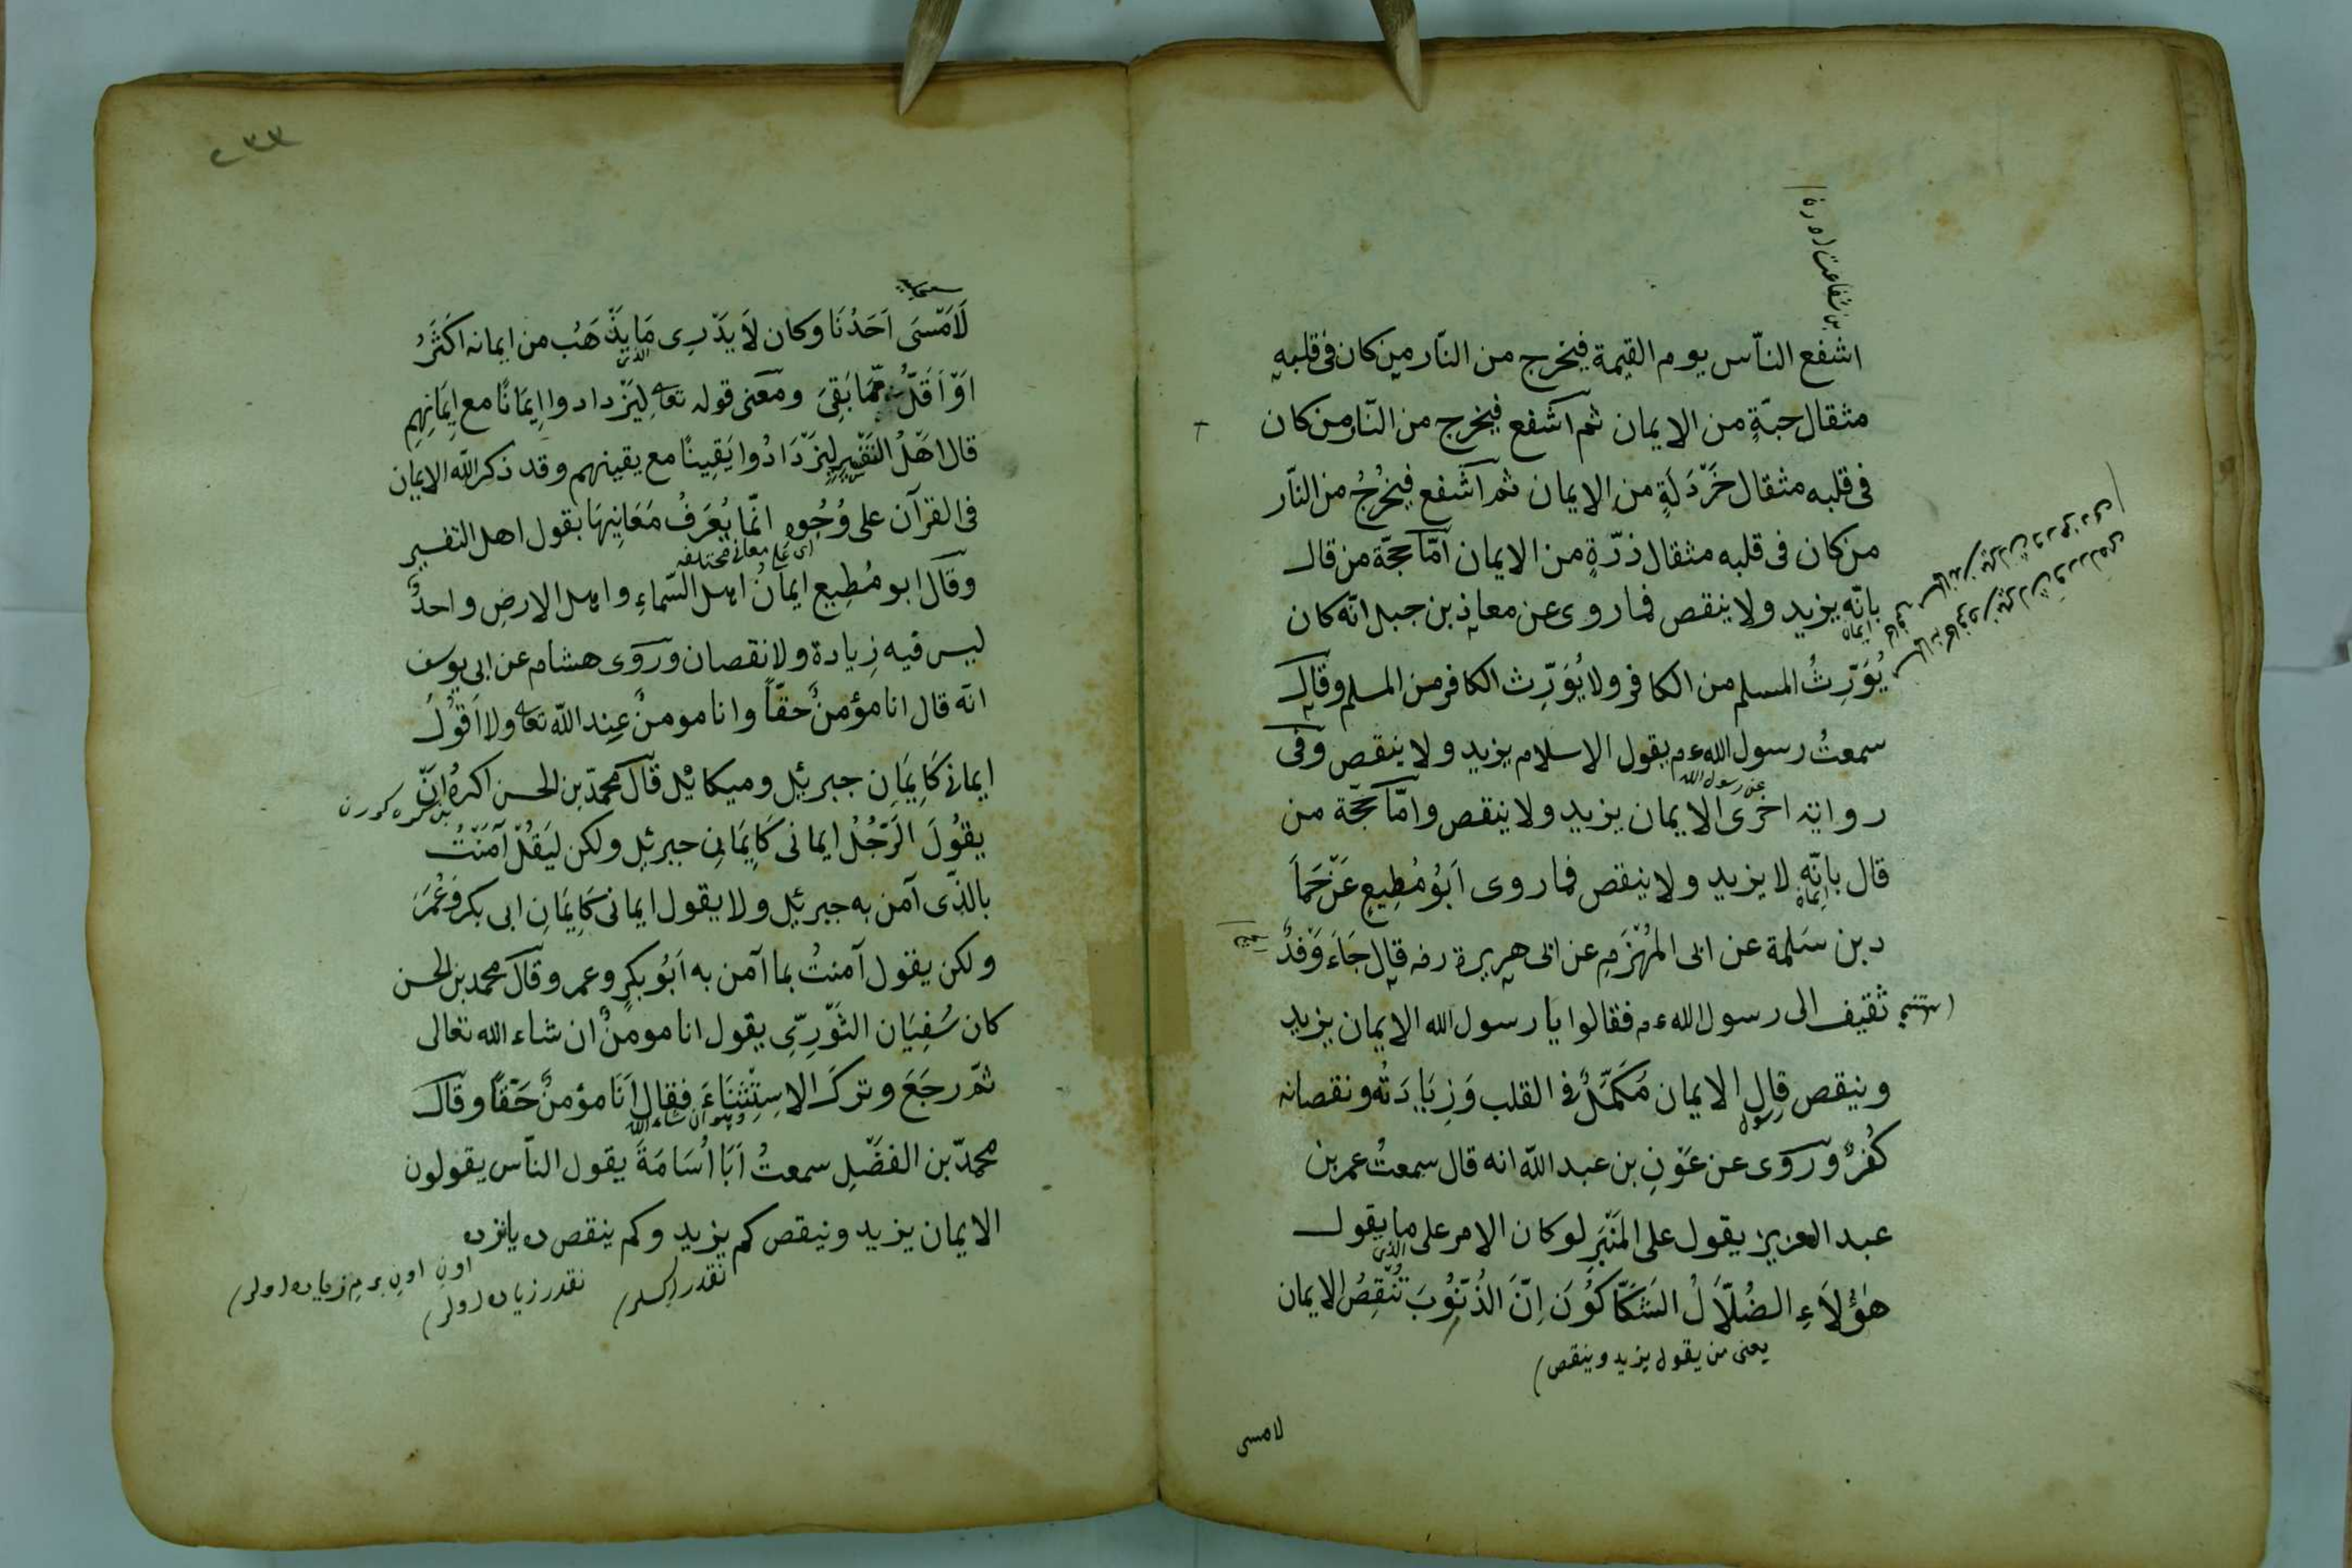 اشفع النّاس يوم القيمة فيخرج من النّار من كان فى قلبه
مثقال حبّةٍ من الايمان ثم اشفع فيخرج من النّار من كان
فى قلبه مثقال خَرْدَلَةٍ من الايمان ثم اشفع فيُخْرِجُ من النّار
من كان فى قلبه مثقال ذرّةٍ من الايمان امّا حجّة من قال
بانّه يزيد ولا ينقص فما روى عن معاذ بن جبل انّه كان
ايمان
يُوَرِّثُ المسلم من الكافر ولا يُوَرِّث الكافر من المسلم وقال
سمعتُ رسول الله عم يقول الاسلام يزيد ولا ينقص وفى
عن رسول الله
رواية اخرى الايمان يزيد ولا ينقص وامّا حجّة من
قال بانّه لا يزيد ولا ينقص فما روى اَبُو مُطِيعٍ عَنْ حَمَا
ايمان
د بن سَلمة عن ابى المُهْزَمِ عن ابى هريرة رضه قال جَاءَ وَفْدُ
ثقيف الى رسول الله عم فقالوا يا رسول الله الايمان يزيد
وينقص قال الايمان مُكَمَّلٌ فى القلب وَزِيَادَتُه ونقصانه
رسول
كُفرٌ ورَوى عن عَوْنِ بن عبد الله انه قال سمعتُ عمر بن
عبد العزيز يقول على المَنْبَرِ لو كان الامر على ما يقول
الذى
هٰؤلَاءِ الضُلّاَلُ الشَكَّاكُوُنَ اِنَّ الذُنُوُبَ تُنْقِصُ الايمان
يعنى من يقول يزيد وينقص
لامسى
٢٣٣
لَاَمْسَى اَحَدُنَا وكان لاَ يَدْرِى مَا يَذْهَبُ من ايمانه اَكْثَرُ
الذى
اَوْ اَقَلُّ مِمّا بَقِىَ ومَعنى قوله تعالى لِيَزْدادوا اِيمَانًا مع اِيمَانِهِمِ
قال اَهْلُ التَفْسِيرِ لِيَزْدَادُوا يَقِينًا مع يقينهم وقد ذكر الله الايمان
فى القرآن على وُجُوهٍ انّما يُعْرَفُ مَعَانِيهَا بقول اهل التفسير
اى على معانى مختلفه
وقال ابو مُطِيعٍ ايمانُ اهل السّماءِ واهل الارضِ واحدٌ
ليس فيه زِيادة ولا نقصان ورَوى هشام عن ابى يوسف
انّه قال انا مؤمنٌ حقّاً وانا مومنٌ عِند الله تعالى ولا اَقُوْلُ
ايمانى كَاِيمَانِ جبرئيل وميكائيل قال محمّد بن الحسن اكرهُ انّ
يقُوُلَ الرَجُلُ ايمانى كَاِيمَانِ جبرئيل ولكن لِيَقُلْ آمَنْتُ
بالّذى آمن به جبرئيل ولا يقول ايمانى كَاِيمَانِ ابى بكر وعُمَرَ
ولكن يقول آمنتُ بما آمن به اَبُو بكرٍ وعمر وقال محمد بن الحسن
كان سُفيَان الثَوْرِىّ يقول انا مومنٌ ان شاء الله تعالى
ثمّ رجَعَ وترَكَ الاسِتِثْنَاءَ فقال اَنَا مؤمنٌ حَقًّا وقال
وهو ان شاء الله
محمّد بن الفضْلِ سمعتُ اَبَا اُسَامَةَ يقول النّاس يقولون
الايمان يزيد وينقص كم يزيد وكم ينقص ده يازده
نقدر زياده اولر
نقدر اكسلر